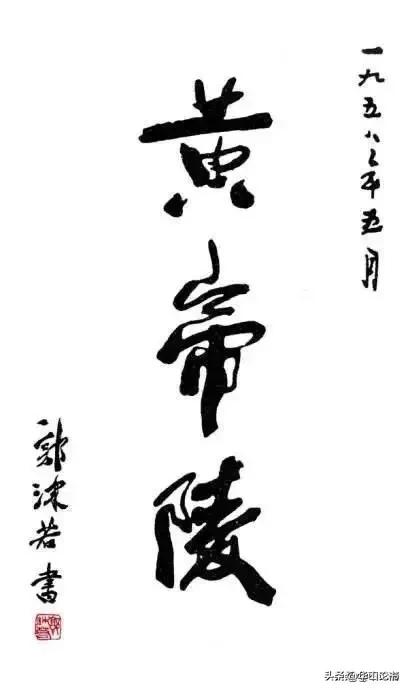 一九五八年五月
黄帝陵
郭沫若書
头条